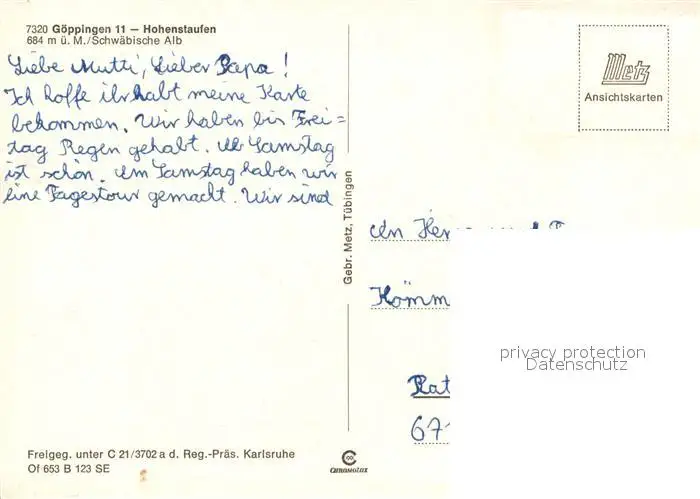 7320 Göppingen 11 — Hohenstaufen
684 m ü. M./Schwäbische Alb
Liebe Mutti, Lieber Papa!
Ich hoffe ihr habt meine Karte
bekommen. Wir haben bis Frei=
tag Regen gehabt. Ab Samstag
ist schön. Am Samstag haben wir
eine Tagestour gemacht. Wir sind
Gebr. Metz, Tübingen
Metz
Ansichtskarten
An Her
Kömm
Rat
67
privacy protection
Datenschutz
Freigeg. unter C 21/3702 a d. Reg.-Präs. Karlsruhe
Of 653 B 123 SE
CHROMOLUX